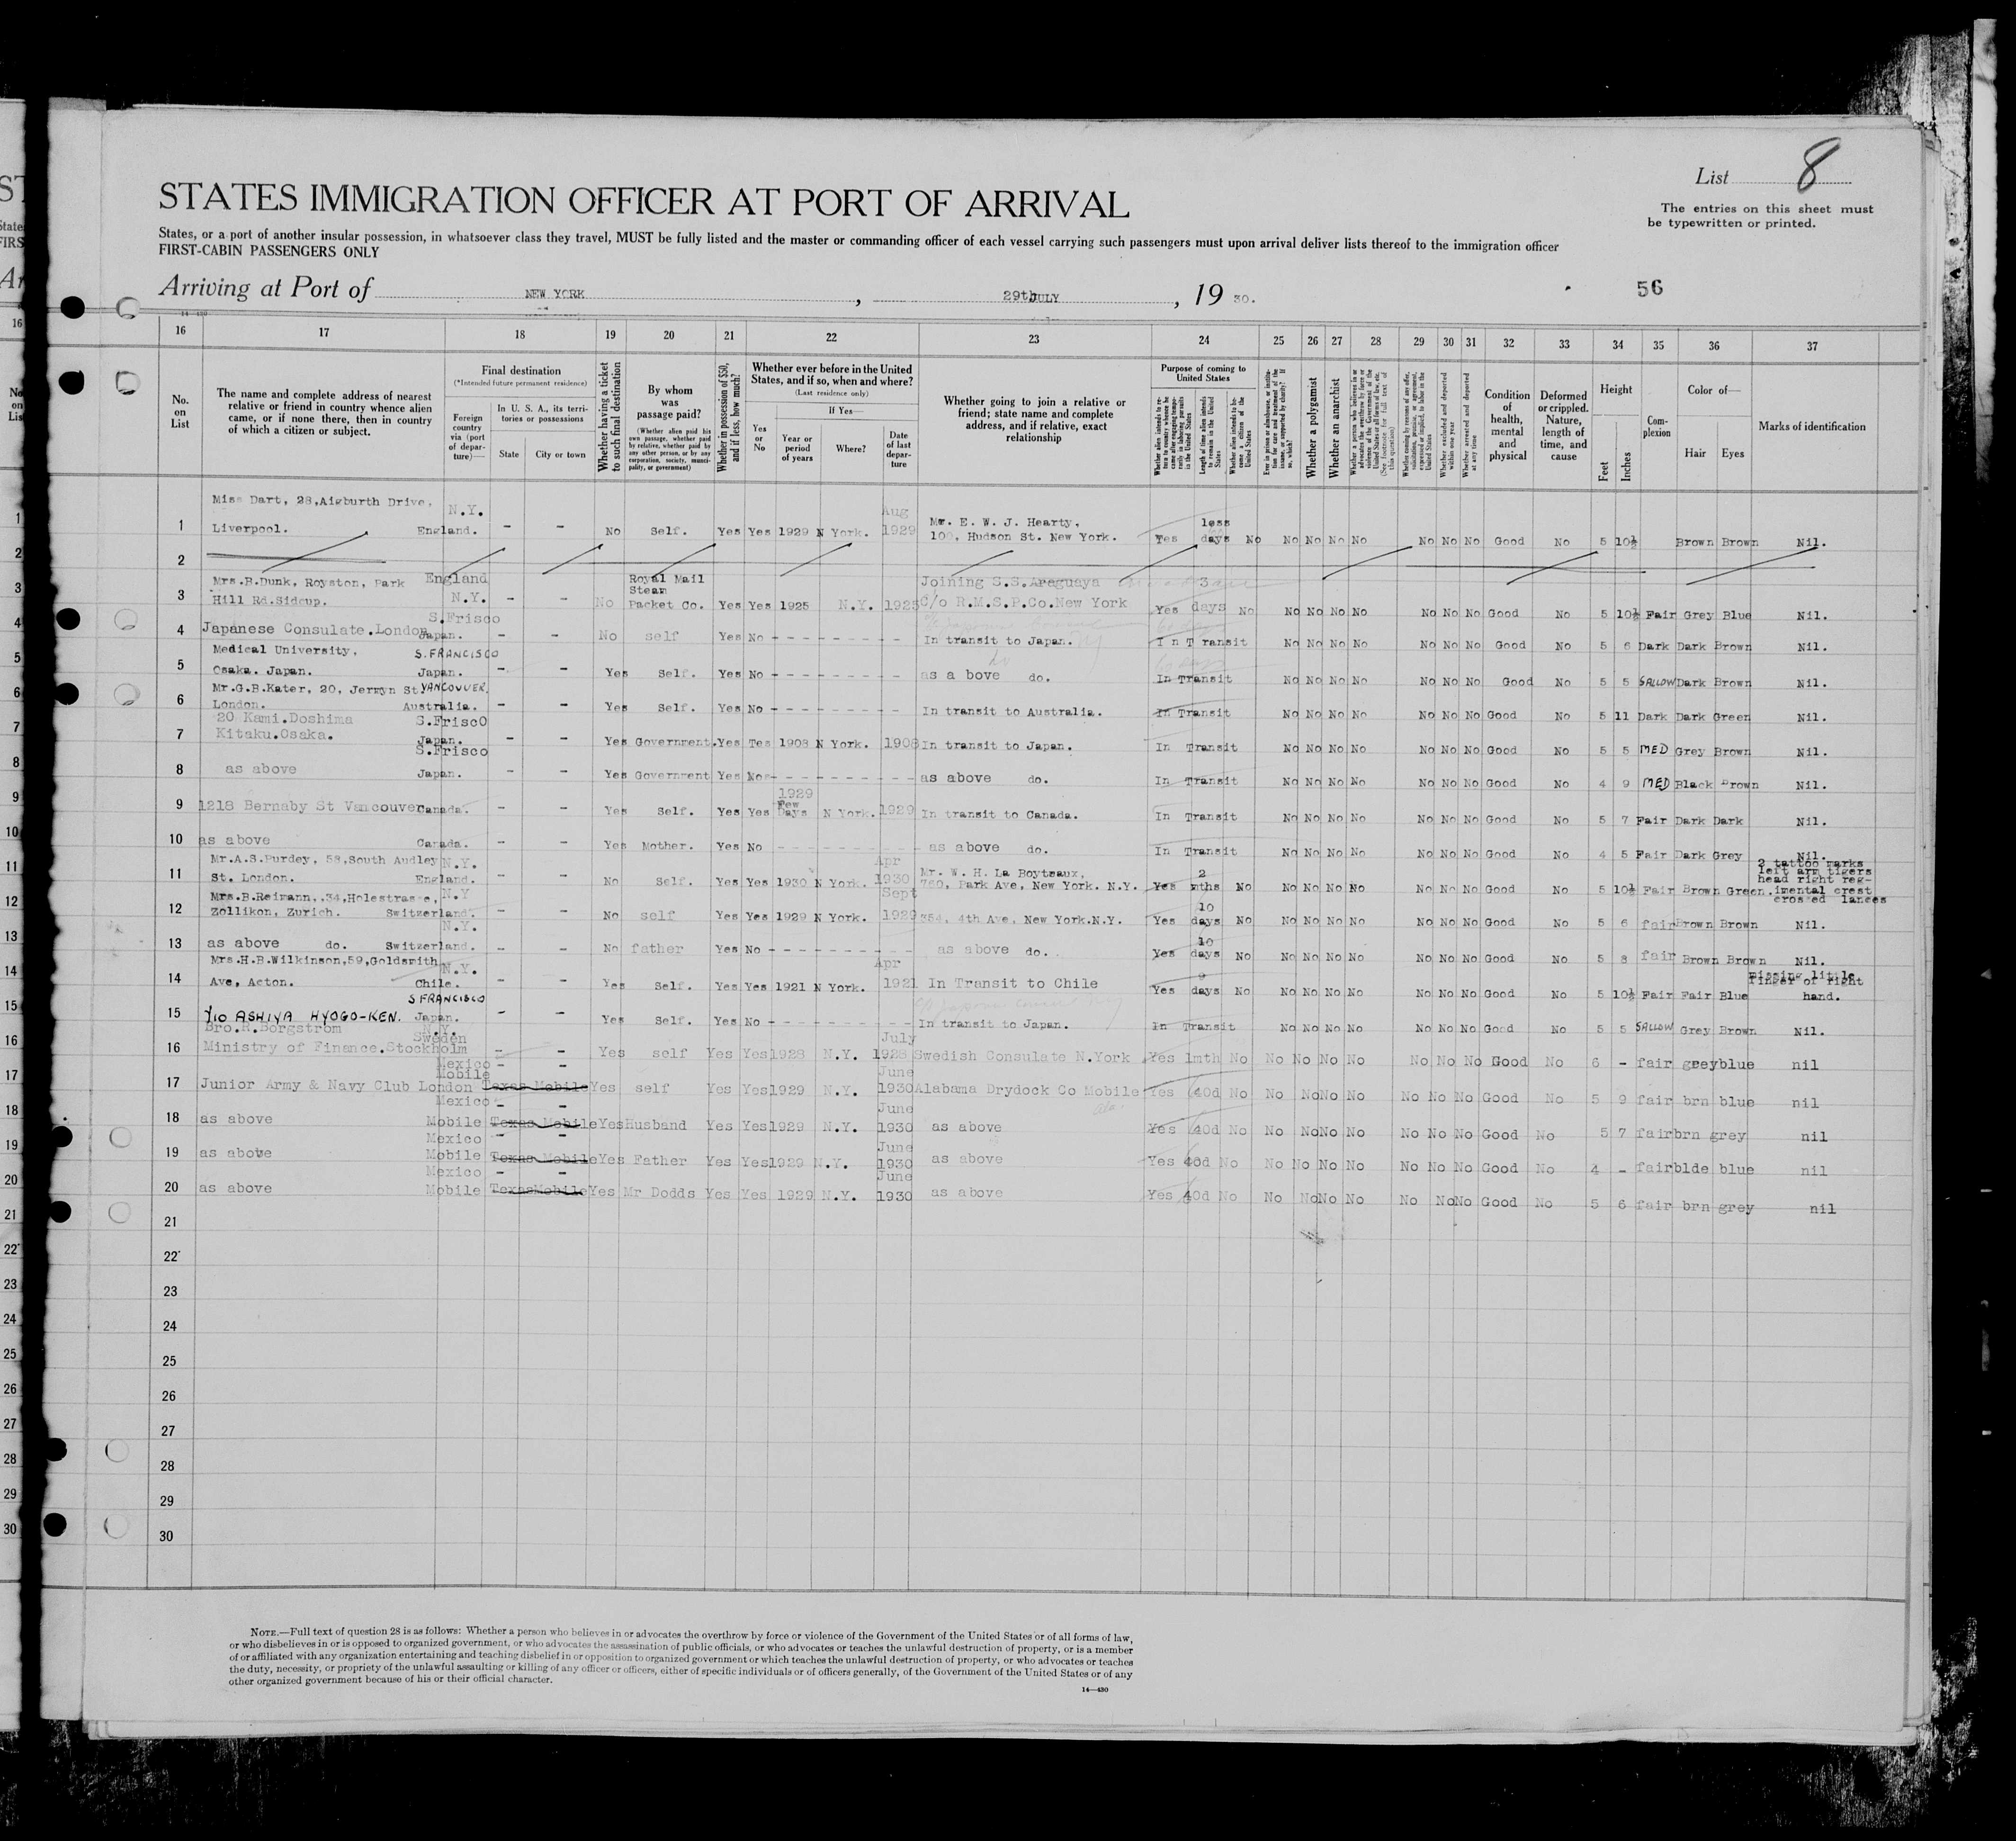 List 8
The entries on this sheet must
be typewritten or printed.
STATES IMMIGRATION OFFICER AT PORT OF ARRIVAL
States, or a port of another insular possession, in whatsoever class they travel, MUST be fully listed and the master or commanding officer of each vessel carrying such passengers must upon arrival deliver lists thereof to the immigration officer
FIRST-CABIN PASSENGERS ONLY
Arriving at Port of NEW YORK , 29th JULY , 19 30.
56
16 17 18 19 20 21 22 23 24 25 26 27 28 29 30 31 32 33 34 35 36 37
No. on List
The name and complete address of nearest
relative or friend in country whence alien
came, or if none there, then in country
of which a citizen or subject.
Final destination
(*Intended future permanent residence)
Foreign country via (port of departure)—
In U. S. A., its territories or possessions
State
City or town
Whether having a ticket to such final destination
By whom was passage paid?
(Whether alien paid his own passage, whether paid by relative, whether paid by any other person, or by any corporation, society, municipality, or government)
Whether in possession of $50, and if less, how much?
Whether ever before in the United
States, and if so, when and where?
(Last residence only)
Yes or No
If Yes—
Year or period of years
Where?
Date of last departure
Whether going to join a relative or
friend; state name and complete
address, and if relative, exact
relationship
Purpose of coming to United States
Whether alien intends to become a citizen of the United States
Whether a polygamist
Whether an anarchist
Whether excluded and deported within one year
Whether arrested and deported at any time
Condition of health, mental and physical
Deformed or crippled. Nature, length of time, and cause
Height
Feet
Inches
Complexion
Color of—
Hair
Eyes
Marks of identification
Miss Dart, 28,Aigburth Drive, N.Y. Aug
1 Liverpool. England. - - No Self. Yes Yes 1929 N York. 1929 Mr. E. W. J. Hearty, 100, Hudson St. New York. Yes less days No No No No No No No No Good No 5 10½ Brown Brown Nil.
2
Mrs.B.Dunk, Royston, Park England Royal Mail Joining S.S.Araguaya 3
3 Hill Rd.Sidcup. N.Y. - - No Steam Packet Co. Yes Yes 1925 N.Y. 1925 C/o R.M.S.P.Co.New York Yes days No No No No No No No No Good No 5 10½ Fair Grey Blue Nil.
S.Frisco
4 Japanese Consulate.London Japan. - - No self Yes No - - - In transit to Japan. In Transit No No No No No No No Good No 5 6 Dark Dark Brown Nil.
Medical University, S.FRANCISCO
5 Osaka. Japan. Japan. - - Yes Self. Yes No - - - as a bove do. In Transit No No No No No No No Good No 5 5 SALLOW Dark Brown Nil.
Mr.G.B.Kater, 20, Jermyn St VANCOUVER.
6 London. Australia. - - Yes Self. Yes No - - - In transit to Australia. In Transit No No No No No No No Good No 5 11 Dark Dark Green Nil.
20 Kami.Doshima S.Frisco
7 Kitaku.Osaka. Japan. - - Yes Government. Yes Tes 1908 N York. 1908 In transit to Japan. In Transit No No No No No No No Good No 5 5 MED Grey Brown Nil.
S.Frisco
8 as above Japan. - - Yes Government Yes No - - - as above do. In Transit No No No No No No No Good No 4 9 MED Black Brown Nil.
1929 Few
9 1218 Bernaby St Vancouver Canada. - - Yes Self. Yes Yes Days N York. 1929 In transit to Canada. In Transit No No No No No No No Good No 5 7 Fair Dark Dark Nil.
10 as above Canada. - - Yes Mother. Yes No - - - as above do. In Transit No No No No No No No Good No 4 5 Fair Dark Grey Nil.
Mr.A.S.Purdey, 58,South Audley N.Y. Apr Mr. W. H. La Boyteaux, 2
11 St. London. England. - - No Self. Yes Yes 1930 N York. 1930 780, Park Ave, New York. N.Y. Yes mths No No No No No No No No Good No 5 10½ Fair Brown Green. 2 tattoo marks left arm tigers head right regimental crest crossed lances
Mrs.B.Reimann,.34,Holestrasse, N.Y Sept 10
12 Zollikon, Zurich. Switzerland. - - No self Yes Yes 1929 N York. 1929 354, 4th Ave, New York.N.Y. Yes days No No No No No No No No Good No 5 6 fair Brown Brown Nil.
N.Y. 10
13 as above do. Switzerland. - - No father Yes No - - - as above do. Yes days No No No No No No No No Good No 5 8 fair Brown Brown Nil.
Mrs.H.B.Wilkinson,59,Goldsmith N.Y. Apr 9
14 Ave, Acton. Chile. - - Yes Self. Yes Yes 1921 N York. 1921 In Transit to Chile Yes days No No No No No No No No Good No 5 10½ Fair Fair Blue missing little finger of right hand.
S FRANCISCO
15 Y10 ASHIYA HYOGO-KEN. Japan. Yes Self. Yes No - - - In transit to Japan. In Transit No No No No No No No Good No 5 5 SALLOW Grey Brown Nil.
Bro.R.Borgstrom N.Y. Sweden July
16 Ministry of Finance.Stockholm - - Yes self Yes Yes 1928 N.Y. 1928 Swedish Consulate N.York Yes 1mth No No No No No No No No Good No 6 - fair grey blue nil
Mexico - - June
17 Junior Army & Navy Club London Mobile Texas Mobile Yes self Yes Yes 1929 N.Y. 1930 Alabama Drydock Co Mobile Ala. Yes 40d No No No No No No No No Good No 5 9 fair brn blue nil
Mexico - - June
18 as above Mobile Texas Mobile Yes Husband Yes Yes 1929 N.Y. 1930 as above Yes 40d No No No No No No No No Good No 5 7 fair brn grey nil
Mexico - - June
19 as above Mobile Texas Mobile Yes Father Yes Yes 1929 N.Y. 1930 as above Yes 40d No No No No No No No No Good No 4 - fair blde blue nil
Mexico - - June
20 as above Mobile Texas Mobile Yes Mr Dodds Yes Yes 1929 N.Y. 1930 as above Yes 40d No No No No No No No No Good No 5 6 fair brn grey nil
21
22
23
24
25
26
27
28
29
30
NOTE.—Full text of question 28 is as follows: Whether a person who believes in or advocates the overthrow by force or violence of the Government of the United States or of all forms of law,
or who disbelieves in or is opposed to organized government, or who advocates the assassination of public officials, or who advocates or teaches the unlawful destruction of property, or is a member
of or affiliated with any organization entertaining and teaching disbelief in or opposition to organized government or which teaches the unlawful destruction of property, or who advocates or teaches
the duty, necessity, or propriety of the unlawful assaulting or killing of any officer or officers, either of specific individuals or of officers generally, of the Government of the United States or of any
other organized government because of his or their official character.
14—430